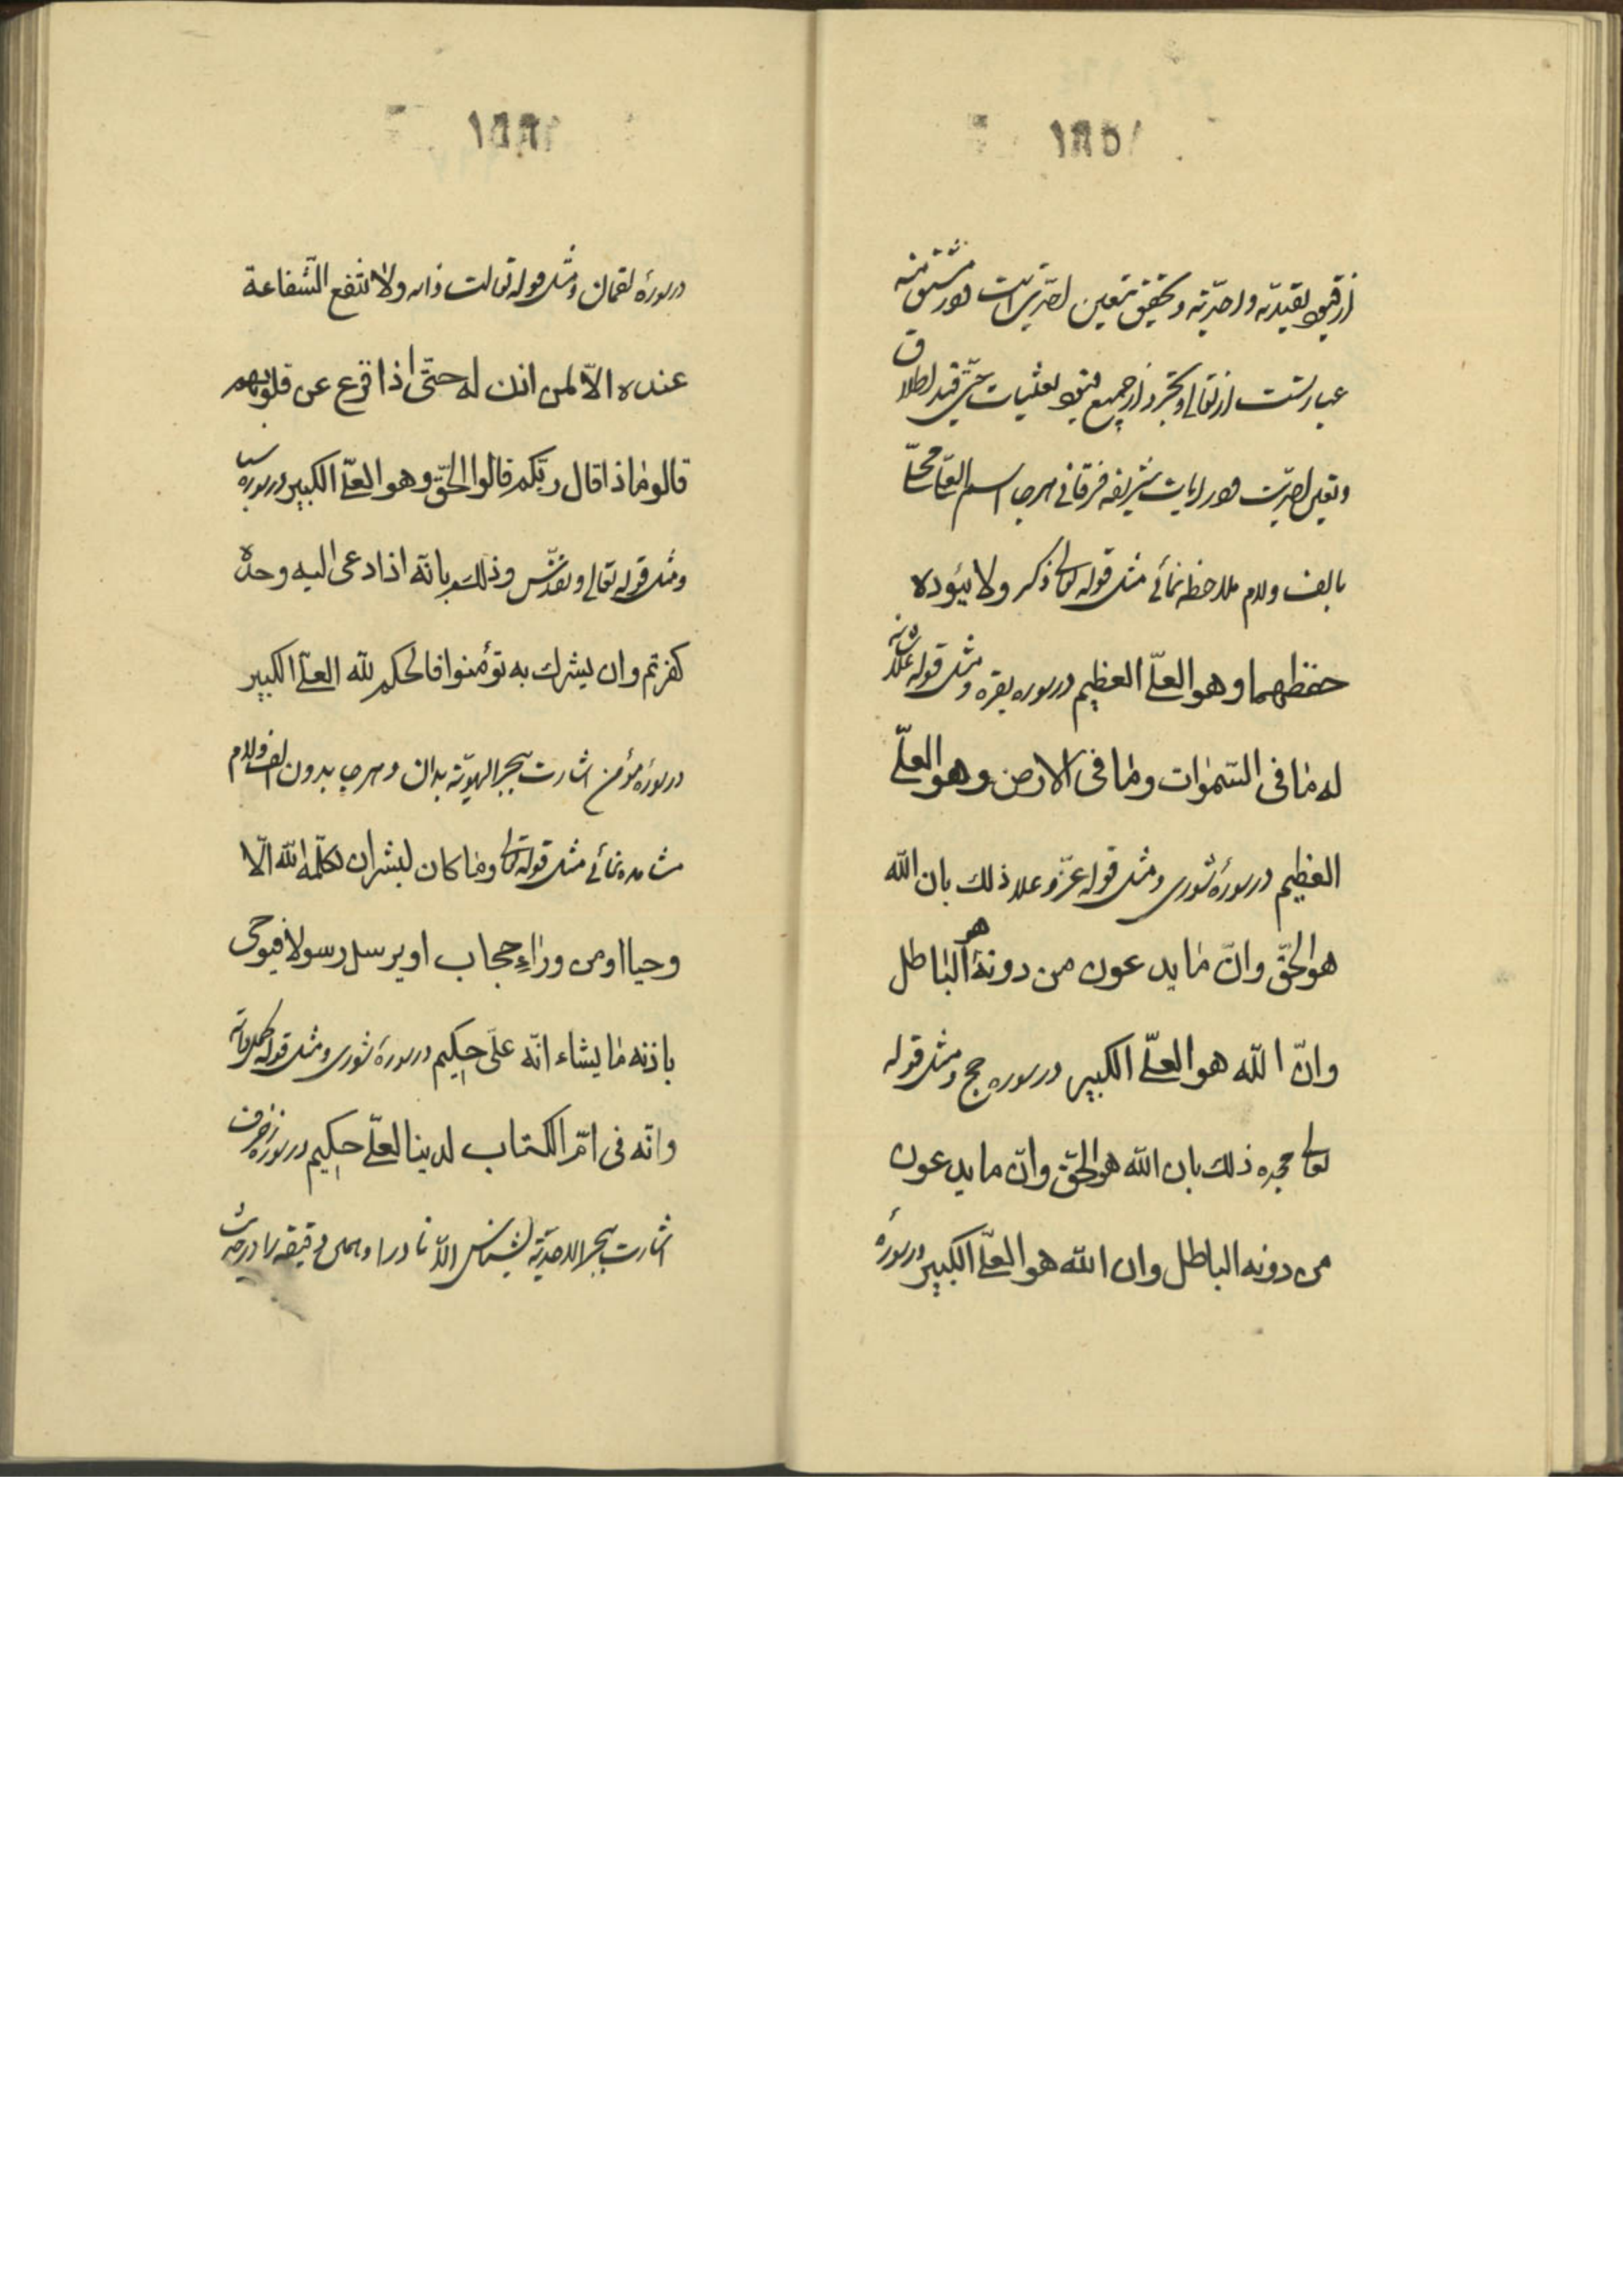 ۱۸۵
از قیود تقیدیه واحدیه و تحقیق بتعین احدیت است و در مشتق منه
عبارتست از تعالی و تجرد از جمیع قیود تعینات حتی قید اطلاق
وتعین احدیت و در ایات شریفه فرقانی هرجا اسم العلی محلّا
بالف ولام ملاحظه نمائی مثل قوله تعالی ذکره ولا یئوده
حفظهما وهو العلیّ العظیم در سوره بقره ومثل قوله علا شانه
له ما فی السّموات وما فی الارض وهو العلیّ
العظیم در سورهٔ شوری ومثل قوله عزّ وعلا ذلك بان الله
هو الحقّ وانّ ما یدعون من دونه هو الباطل
وانّ الله هو العلیّ الکبیر در سوره حج ومثل قوله
تعالی مجده ذلك بان الله هو الحقّ وانّ ما یدعون
من دونه الباطل وان الله هو العلیّ الکبیر در سورهٔ
۱۸۶
در سورهٔ لقمان ومثل قوله تعالت ذاته ولا تنفع الشّفاعة
عنده الاّ لمن اذن له حتّی اذا فزع عن قلوبهم
قالو ماذا قال ربّکم قالوا الحقّ وهو العلیّ الکبیر در سوره سبا
ومثل قوله تعالی وتقدّس وذلکم بانّه اذا دعی الیه وحده
کفرتم وان یشرك به تؤمنوا فالحکم لله العلیّ الکبیر
در سورهٔ مؤمن اشارت ببحر الهویّة بدان و هرجا بدون الف ولام
مشاهده نمائی مثل قوله تعالی وما کان لبشر ان یکلّمه الله الّا
وحیا او من وراءِ حجاب او یرسل رسولا فیوحی
باذنه ما یشاء انّه علیّ حکیم در سورهٔ شوری ومثل قوله
وانّه فی امّ الکتاب لدینا لعلیّ حکیم در سوره زخرف
اشارت ببحر الاحدیّة بشناس الّا نادرا و همین دقیقه را در